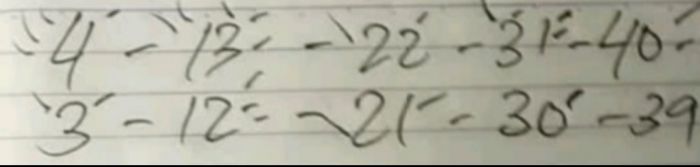 4 - 13 - 22 - 31 - 40 -
3 - 12 - 21 - 30 - 39